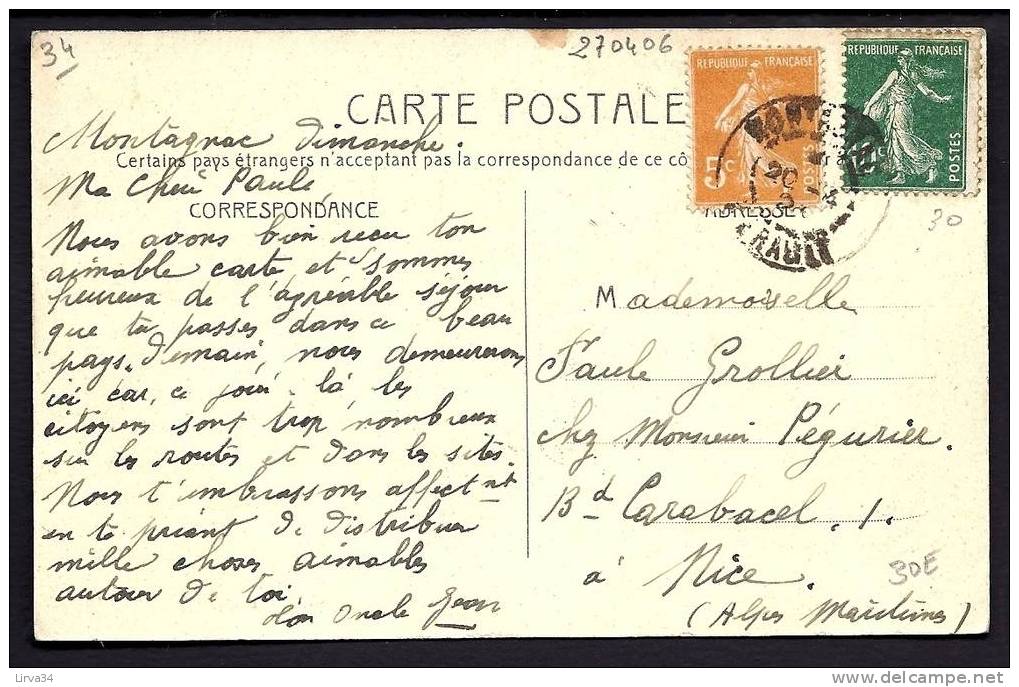 34
270406
REPUBLIQUE FRANÇAISE
5c
REPUBLIQUE FRANÇAISE
POSTES
CARTE POSTALE
Montagnac Dimanche.
Certains pays étrangers n'acceptant pas la correspondance de ce cô
Ma Cherie Paule
CORRESPONDANCE
ADRESSE
20
HERAULT
30
Nous avons bien recu ton
aimable carte et sommes
heureux de l'agréable séjour
que tu passes dans ce beau
pays. Demain, nous demeurerons
ici car, ce jour-là les
citoyens sont trop nombreux
sur les routes et dans les sites.
Nous t'embrassons affect nt
en te priant de distribuer
mille choses aimables
autour de toi
Ton Oncle Jean
Mademoiselle
Paule Grollier
chez Monsieur Pégurier.
Bd Carabacel. 1.
à Nice.
30E
(Alpes Maritimes)
Lirva34
delcampe.net